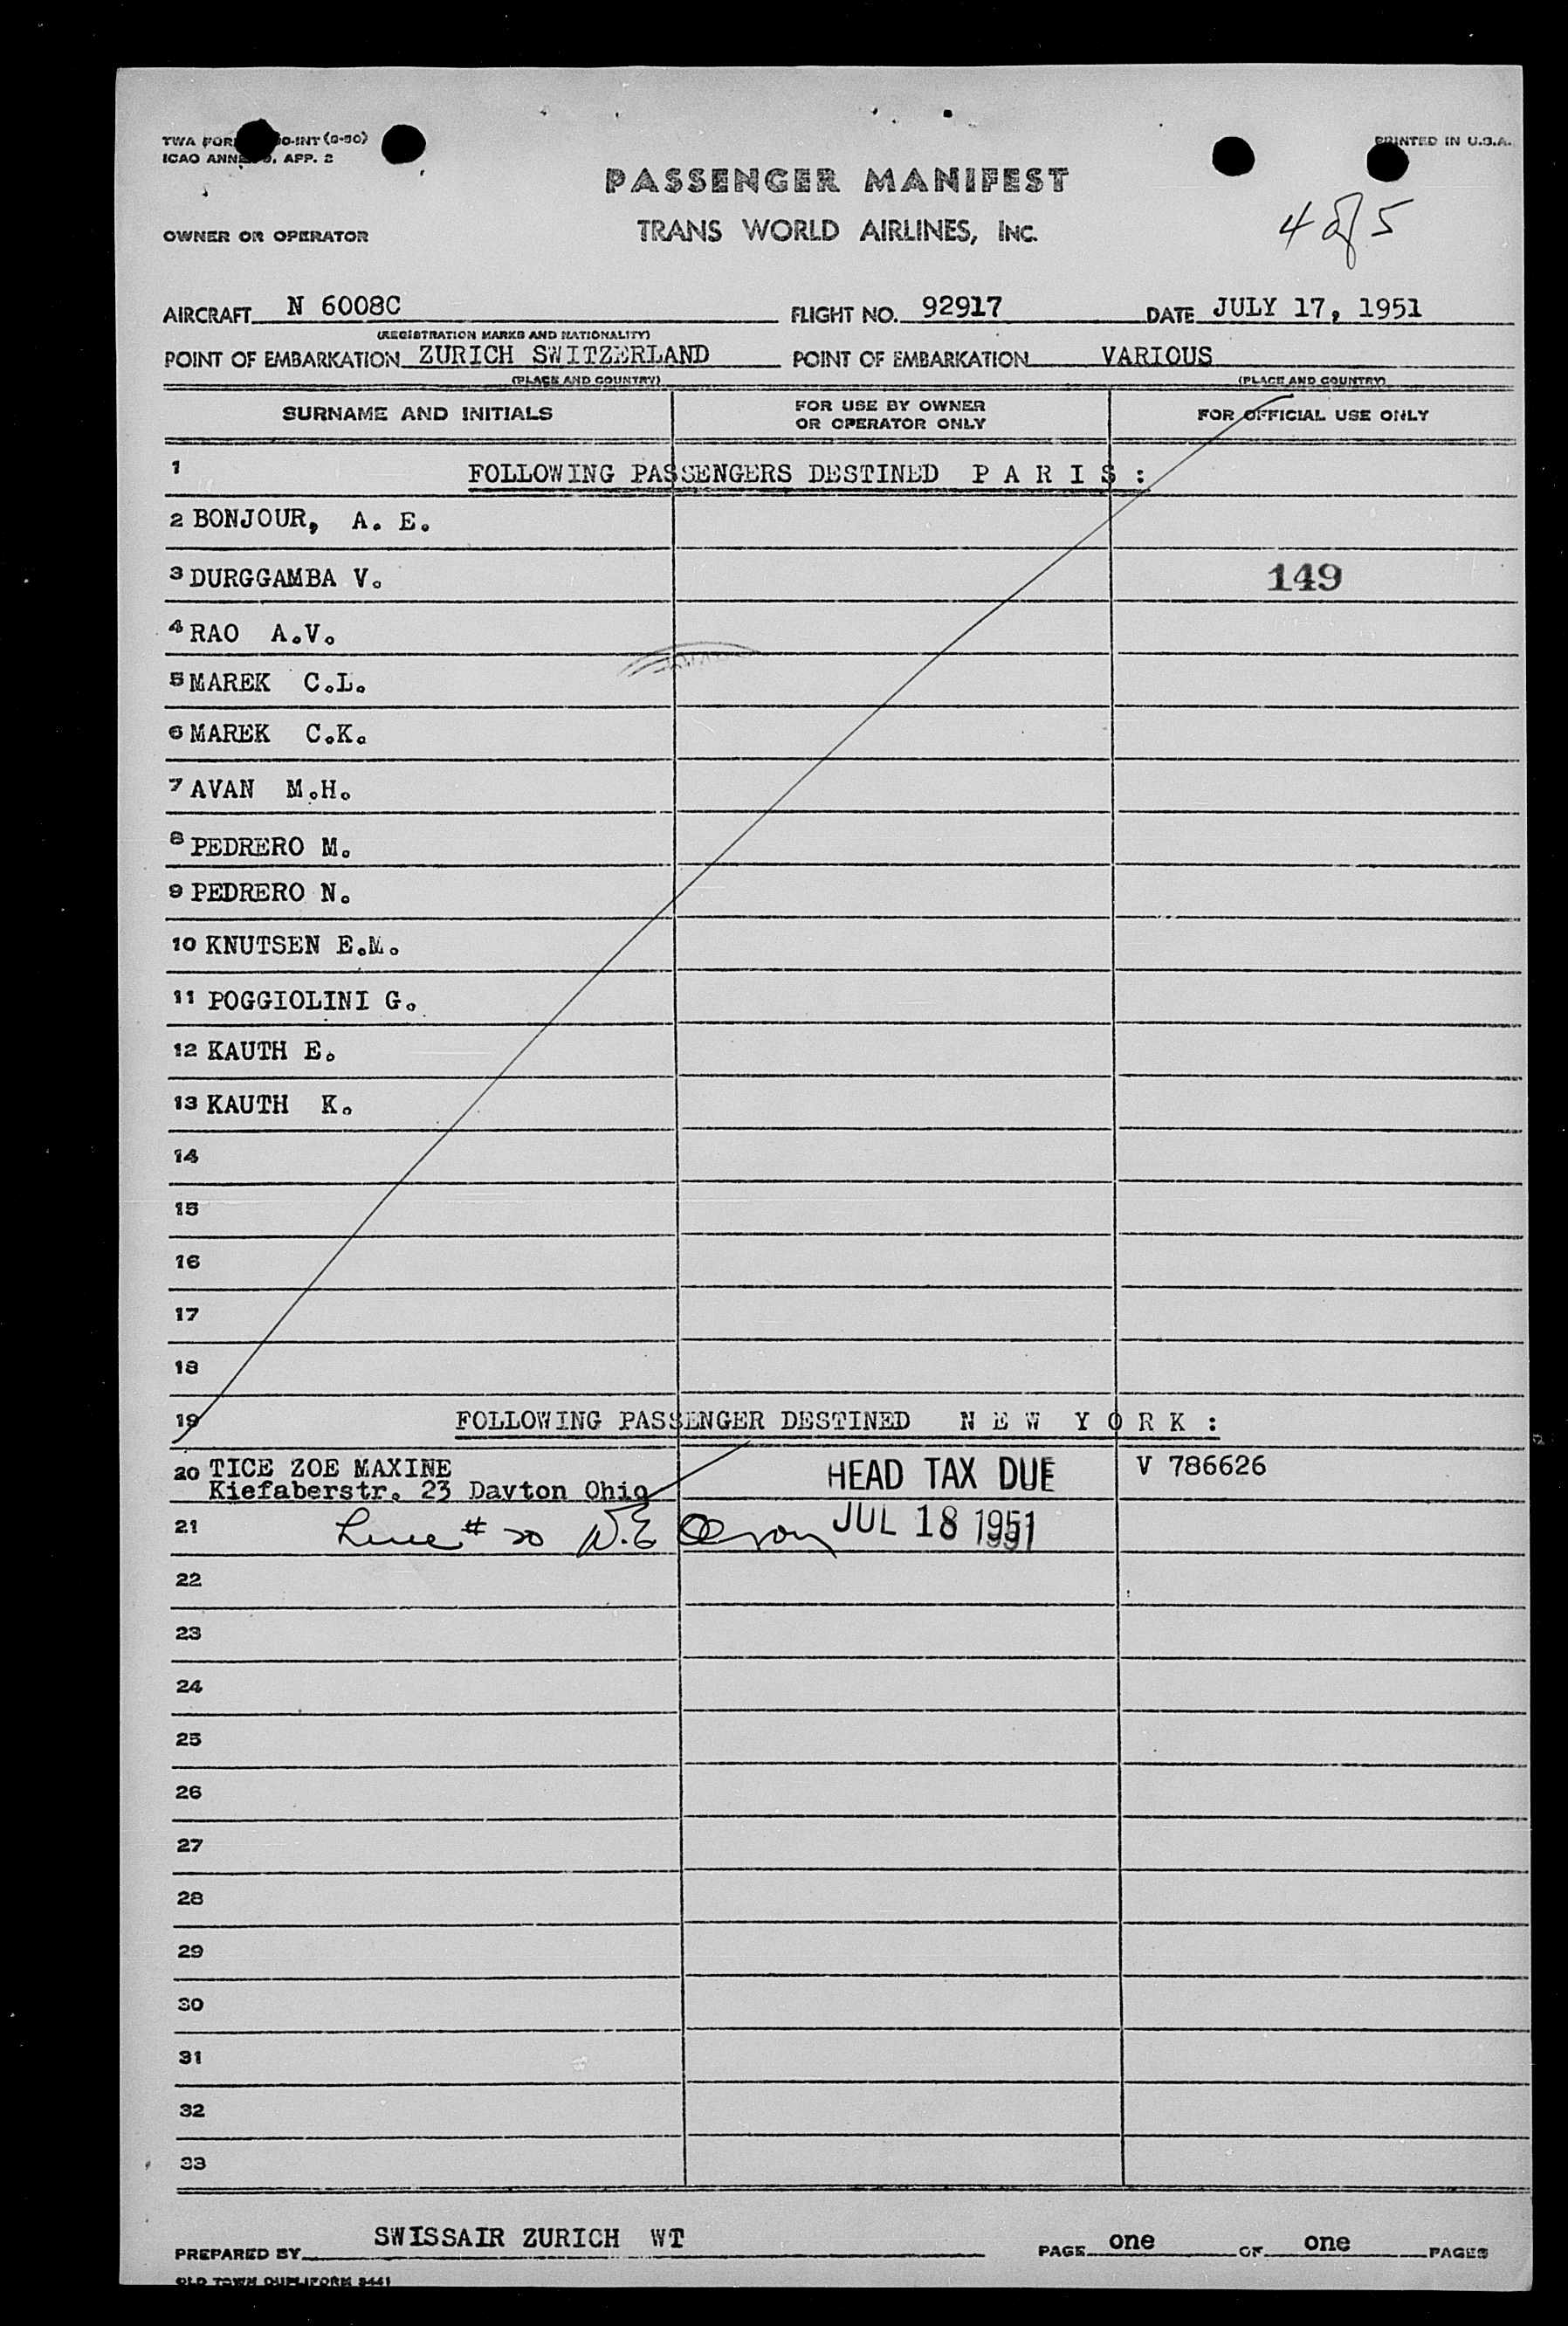 TWA FOR O-INT (9-50)
ICAO ANNE 9, APP. 2
PRINTED IN U.S.A.
PASSENGER MANIFEST
4 of 5
OWNER OR OPERATOR
TRANS WORLD AIRLINES, INC.
AIRCRAFT N 6008C FLIGHT NO. 92917 DATE JULY 17, 1951
(REGISTRATION MARKS AND NATIONALITY)
POINT OF EMBARKATION ZURICH SWITZERLAND POINT OF EMBARKATION VARIOUS
(PLACE AND COUNTRY) (PLACE AND COUNTRY)
SURNAME AND INITIALS FOR USE BY OWNER OR OPERATOR ONLY FOR OFFICIAL USE ONLY
1 FOLLOWING PASSENGERS DESTINED P A R I S :
2 BONJOUR, A. E.
3 DURGGAMBA V. 149
4 RAO A.V.
5 MAREK C.L.
6 MAREK C.K.
7 AVAN M.H.
8 PEDRERO M.
9 PEDRERO N.
10 KNUTSEN E.M.
11 POGGIOLINI G.
12 KAUTH E.
13 KAUTH K.
14
15
16
17
18
19 FOLLOWING PASSENGER DESTINED N E W Y O R K :
20 TICE ZOE MAXINE HEAD TAX DUE V 786626
Kiefaberstr. 23 Dayton Ohio
21 Line # 20 JUL 18 1951
22
23
24
25
26
27
28
29
30
31
32
33
PREPARED BY SWISSAIR ZURICH WT PAGE one OF one PAGES
OLD TOWN DUPLIFORM 8441